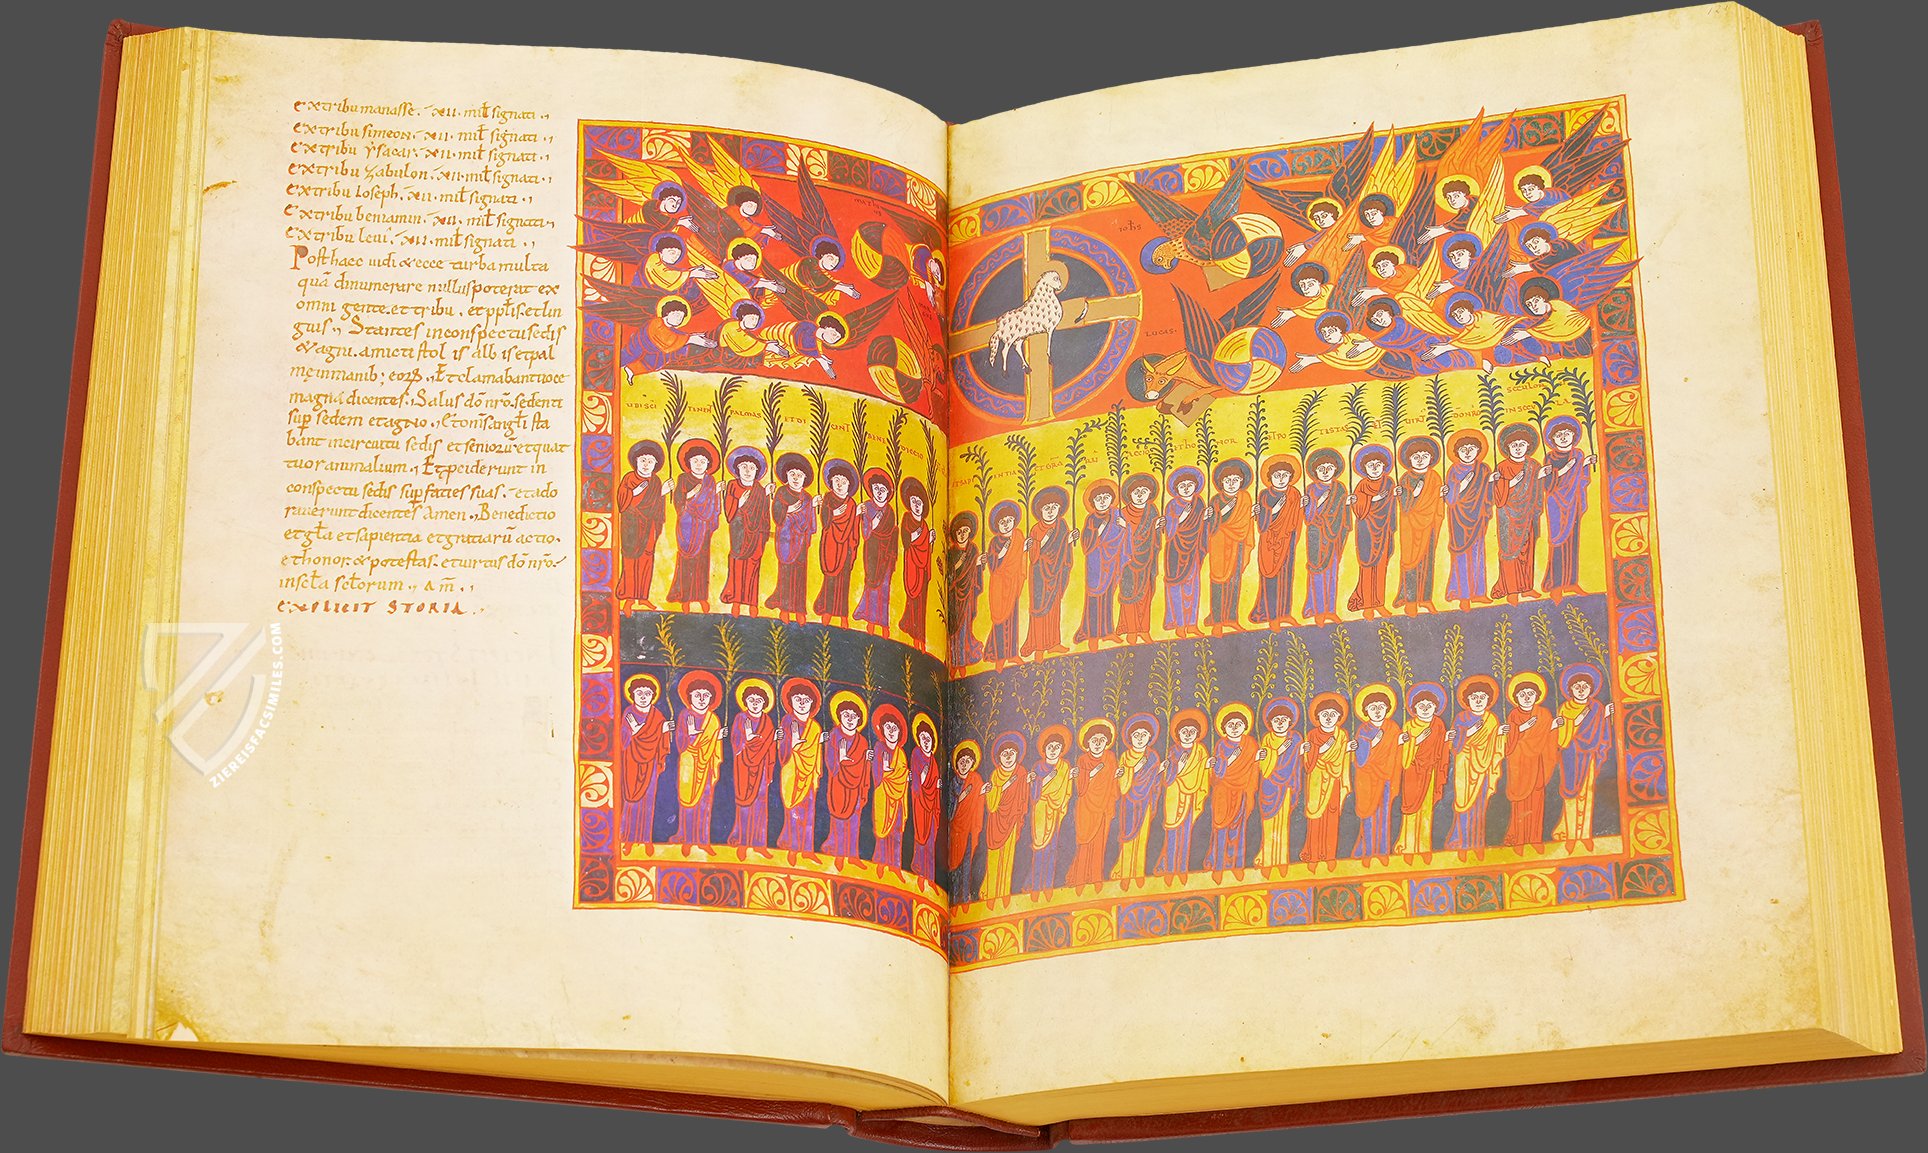 Extribu manasse. xii. mil signati.,
Extribu simeon. xii. mil signati.,
Extribu ysacar. xii. mil signati.,
Extribu zabulon. xii. mil signati.,
Extribu Ioseph. xii. mil signati.,
Extribu beniamin. xii. mil signati.,
Extribu levi. xii. mil signati.,
Posthaec uidi et ecce turba multa
quā dinumerare nullus poterat ex
omni gente. et tribu. et pplis. et lin
guis., Stantes inconspectu sedis
et agni. amicti stolis albis et pal
mę inmanib; eorꝝ., Et clamabant uoce
magnā dicentes. Salus dōnr̄o. sedenti
sup sedem et agno., Et om̄s angli sta
bant incircuitu sedis et seniorū et quat
tuor animalium., Et ceciderunt in
conspectu sedis sup facies suas. et ado
rauerunt dicentes Amen., Benedictio
et gła et sapientia et gratiarū actio.
ethonor. et potestas. et uirtus dōnr̄o.
inscła scłorum., Am̄.,
EXPLICIT STORIA.
MATHEUS
IOHS
LUCAS.
UBI SCI TENEN PALMAS ET DI CANT BENE DICCIO
ET SAP IENTIA ET GRA RU ACCIO ET HONOR ET PO TESTAS ET UIRT DONRO IN SECULA SECULOR
ZIEREISFACSIMILES.COM